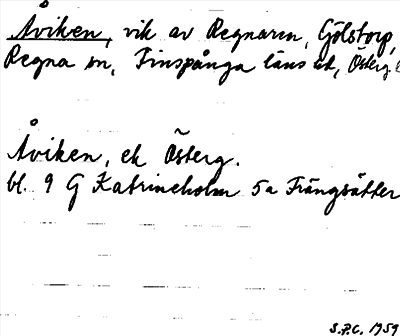 Åviken, vik av Regnaren, Gölstorp,
Regna sn, Finspånga läns hd, Österg.
Åviken, ek Österg.
bl. 9 G Katrineholm 5a Frängsätter
S.P.C. 1959